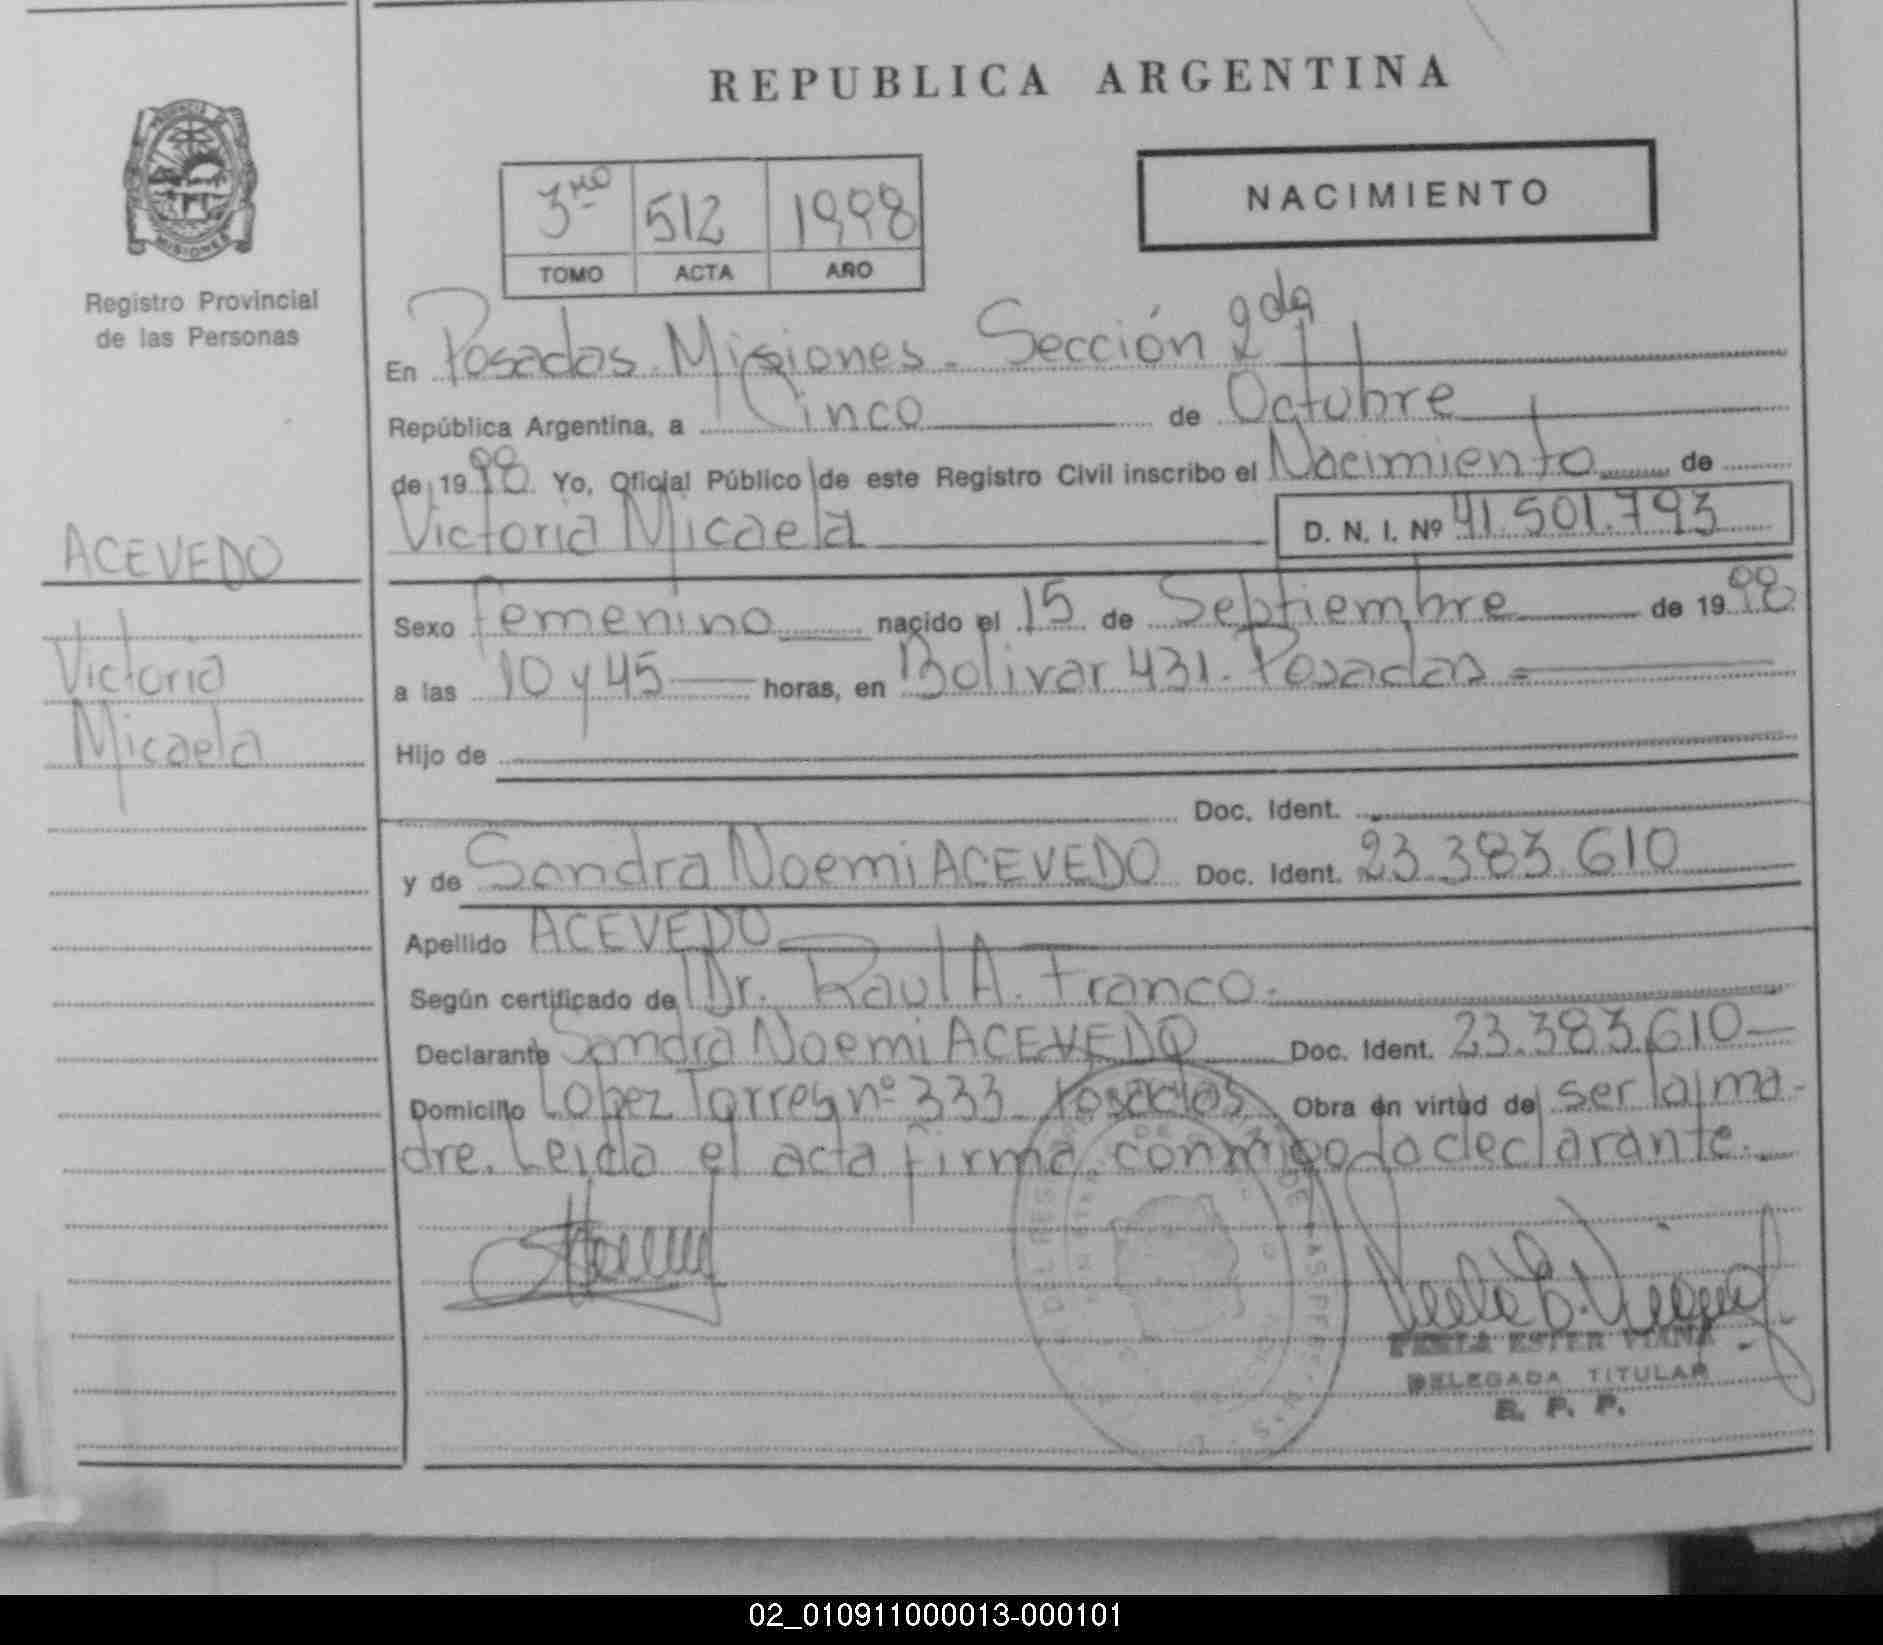 REPUBLICA ARGENTINA
NACIMIENTO
3ro 512 1998
TOMO ACTA AÑO
MISIONES
Registro Provincial
de las Personas
En Posadas. Misiones. Sección 2da
República Argentina, a Cinco de Octubre
de 1998 Yo, Oficial Público de este Registro Civil inscribo el Nacimiento de
Victoria Micaela D. N. I. Nº 41.501.793
ACEVEDO
Victoria
Micaela
Sexo femenino nacido el 15 de Septiembre de 1998
a las 10 y 45 horas, en Bolivar 431. Posadas
Hijo de
Doc. Ident.
y de Sandra Noemi ACEVEDO Doc. Ident. 23.383.610
Apellido ACEVEDO
Según certificado de Dr. Raul A. Franco.
Declarante Sandra Noemi ACEVEDO Doc. Ident. 23.383.610
Domicilio Lopez Torres nº 333 Posadas Obra en virtud de ser la ma-
dre. Leida el acta firma conmigo la declarante.
ESTER VIANA
DELEGADA TITULAR
R. P. P.
02_010911000013-000101